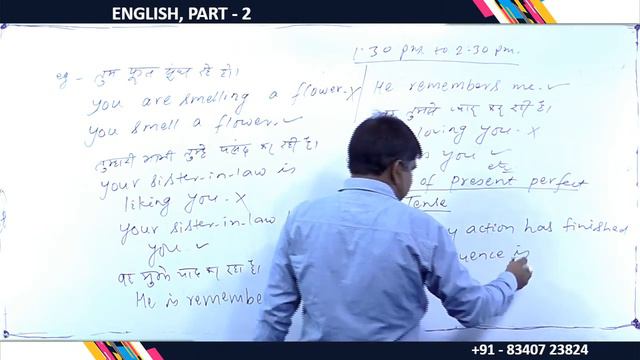 ENGLISH, PART - 2
1.30 pm. to 2.30 pm.
eg - तुम फूल सूंघ रहे हो।
You are smelling a flower. x
You smell a flower. ✓
तुम्हारी भाभी तुम्हें पसंद कर रही है।
Your sister-in-law is
liking you. x
Your sister-in-law
you. ✓
वह मुझे याद कर रहा है।
He is remembe
He remembers me. ✓
कर रही है।
loving you. x
you ✓
etc
of present perfect
Tense
action has finished
is
+91 - 83407 23824